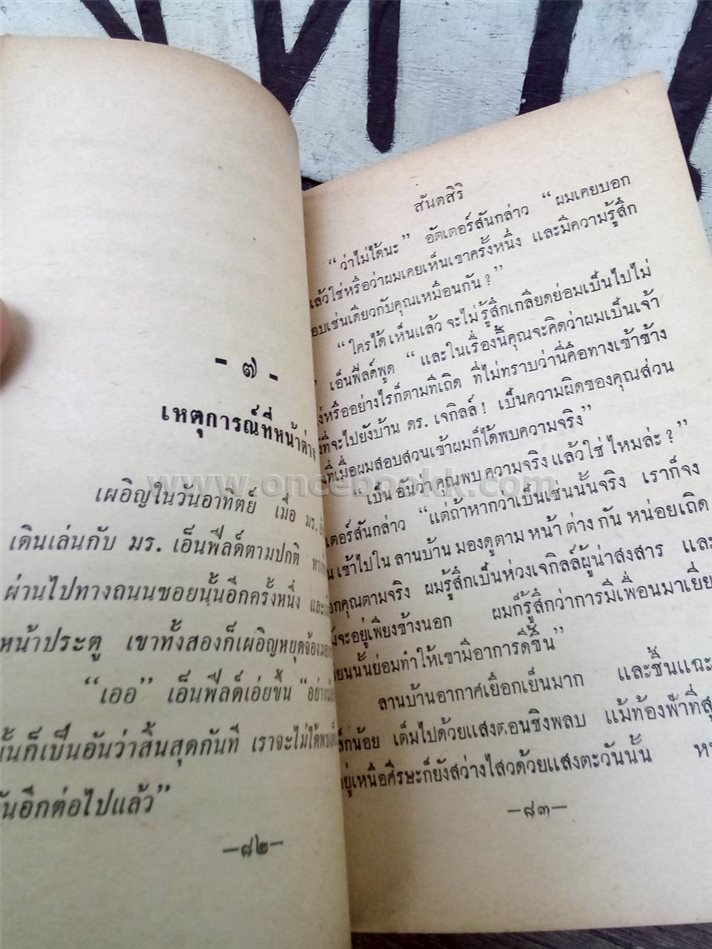 - ๗ -
เหตุการณ์ที่หน้าต่าง
เผอิญในวันอาทิตย์ เมื่อ มร.
เดินเล่นกับ มร. เอ็นฟีลด์ตามปกติ
ผ่านไปทางถนนซอยนั้นอีกครั้งหนึ่ง และ
หน้าประตู เขาทั้งสองก็เผอิญหยุดจ้อง
“เออ” เอ็นฟีลด์เอ่ยขึ้น
นั้นก็เป็นอันว่าสิ้นสุดกันที เราจะไม่ได้
กันอีกต่อไปแล้ว”
—๘๒—
สันตสิริ
“ว่าไม่ได้นะ” อัตเตอร์สันกล่าว “ผมเคยบอก
แล้วใช่หรือว่าผมเคยเห็นเขาครั้งหนึ่ง และมีความรู้สึก
ชอบเช่นเดียวกับคุณเหมือนกัน?”
“ใครได้ เห็นแล้ว จะไม่ รู้สึกเกลียดย่อมเป็นไปไม่
เอ็นฟีลด์พูด “และในเรื่องนี้คุณจะคิดว่าผมเป็นเจ้า
หรืออย่างไรก็ตามทีเถิด ที่ไม่ทราบว่านี่คือทางเข้าข้าง
ที่จะไปยังบ้าน ดร. เจกิลล์! เป็นความผิดของคุณส่วน
ที่เมื่อผมสอบสวนเข้าผมก็ได้พบความจริง”
“เป็น อันว่าคุณพบ ความจริง แล้วใช่ ไหมล่ะ?”
เตอร์สันกล่าว “แต่ถ้าหากว่าเป็นเช่นนั้นจริง เราก็จง
เข้าไปใน ลานบ้าน มองดูตาม หน้า ต่าง กัน หน่อยเถิด
บอกคุณตามจริง ผมรู้สึกเป็นห่วงเจกิลล์ผู้น่าสงสาร และ
จะอยู่เพียงข้างนอก ผมก็รู้สึกว่าการมีเพื่อนมาเยี่ย
นั้นย่อมทำให้เขามีอาการดีขึ้น”
ลานบ้านอากาศเยือกเย็นมาก และชื้นแฉะ
เล็กน้อย เต็มไปด้วยแสงตอนชิงพลบ แม้ท้องฟ้าที่สู
อยู่เหนือศีรษะก็ยังสว่างไสวด้วยแสงตะวันนั้น
—๘๓—
www.oncebookk.com